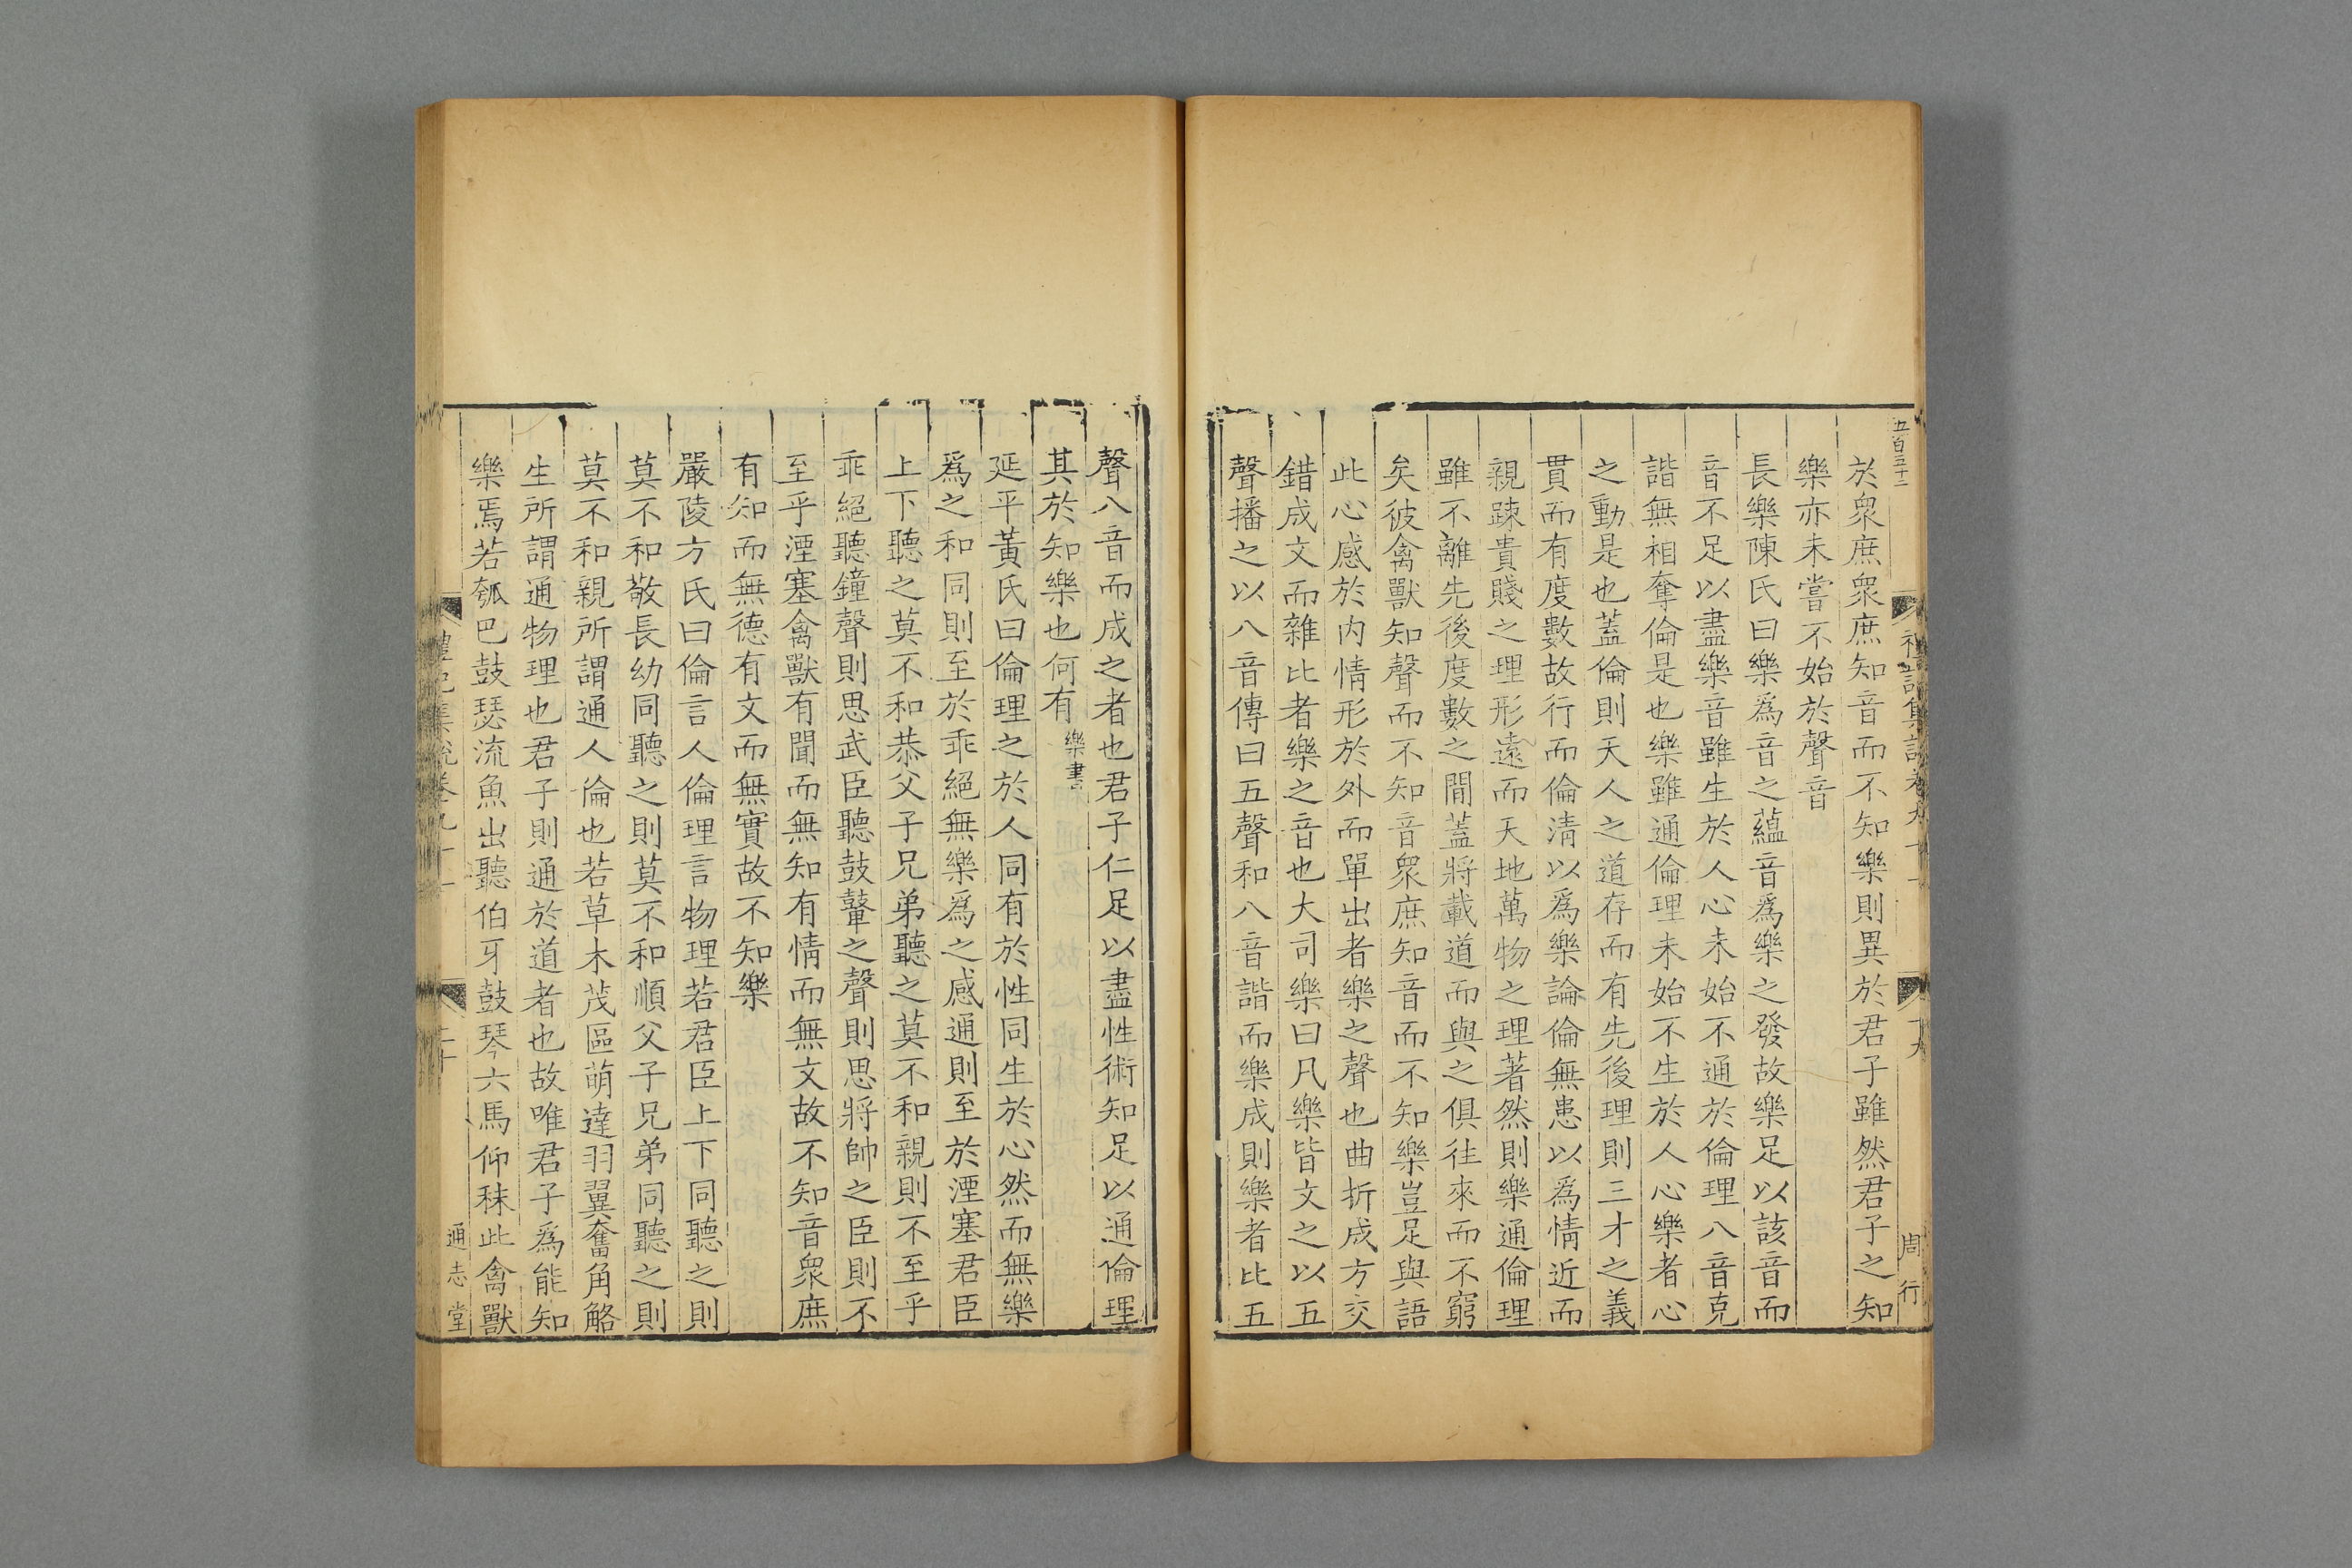 五百三十二
於衆庶衆庶知音而不知樂則異於君子雖然君子之知
樂亦未嘗不始於聲音
長樂陳氏曰樂爲音之蘊音爲樂之發故樂足以該音而
音不足以盡樂音雖生於人心未始不通於倫理八音克
諧無相奪倫是也樂雖通倫理未始不生於人心樂者心
之動是也蓋倫則天人之道存而有先後理則三才之義
貫而有度數故行而倫清以爲樂論倫無患以爲情近而
親踈貴賤之理形遠而天地萬物之理著然則樂通倫理
雖不離先後度數之間蓋將載道而與之俱往來而不窮
矣彼禽獸知聲而不知音衆庶知音而不知樂豈足與語
此心感於内情形於外而單出者樂之聲也曲折成方交
錯成文而雜比者樂之音也大司樂曰凡樂皆文之以五
聲播之以八音傳曰五聲和八音諧而樂成則樂者比五
周行
聲八音而成之者也君子仁足以盡性術知足以通倫理
其於知樂也何有樂書
延平黃氏曰倫理之於人同有於性同生於心然而無樂
爲之和同則至於乖絕無樂爲之感通則至於湮塞君臣
上下聽之莫不和恭父子兄弟聽之莫不和親則不至乎
乖絕聽鐘聲則思武臣聽鼓鼙之聲則思將帥之臣則不
至乎湮塞禽獸有聞而無知有情而無文故不知音衆庶
有知而無德有文而無實故不知樂
嚴陵方氏曰倫言人倫理言物理若君臣上下同聽之則
莫不和敬長幼同聽之則莫不和順父子兄弟同聽之則
莫不和親所謂通人倫也若草木茂區萌達羽翼奮角觡
生所謂通物理也君子則通於道者也故唯君子爲能知
樂焉若瓠巴鼓瑟流魚出聽伯牙鼓琴六馬仰秣此禽獸
禮記集說卷九十一
二十
通志堂